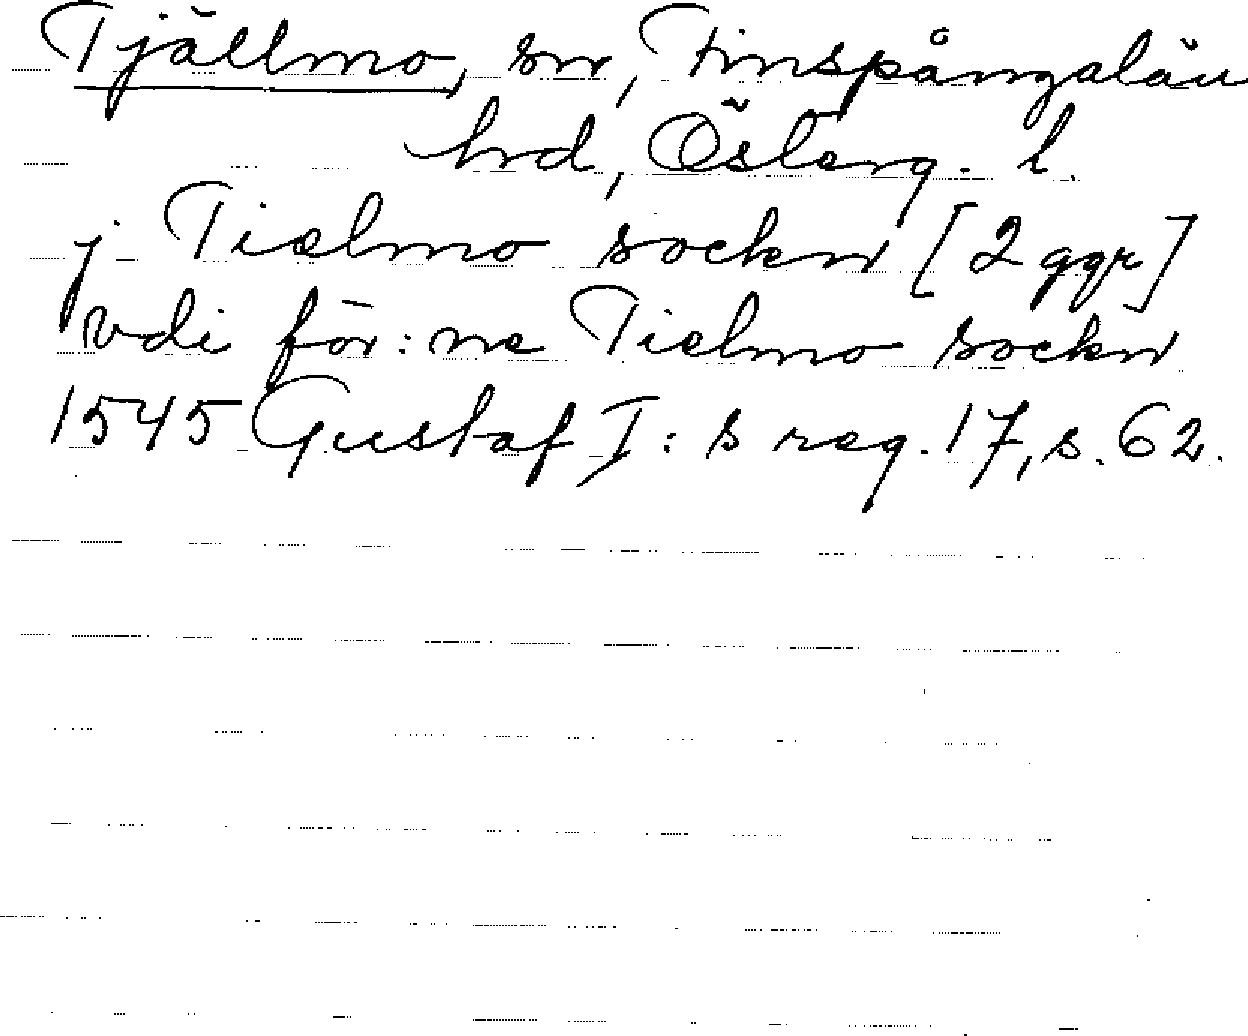 Tjällmo, sn, Finspångalän
hrd, Österg. l.
j Tielmo sockn [2 ggr]
vdi för:ne Tielmo sockn
1545 Gustaf I:s reg. 17, s. 62.